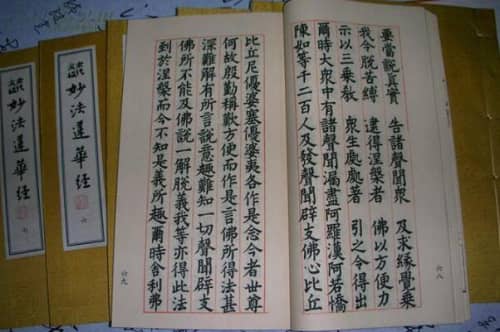 要當說真實 告諸聲聞眾 及求緣覺乘
我令脫苦縛 逮得涅槃者 佛以方便力
示以三乘教 眾生處處著 引之令得出
爾時大眾中有諸聲聞漏盡阿羅漢阿若憍
陳如等千二百人及發聲聞辟支佛心比丘
六八
比丘尼優婆塞優婆夷各作是念今者世尊
何故殷勤稱歎方便而作是言佛所得法甚
深難解有所言說意趣難知一切聲聞辟支
佛所不能及佛說一解脫義我等亦得此法
到於涅槃而今不知是義所趣爾時舍利弗
六九
妙法蓮華經 六
妙法蓮華經 七